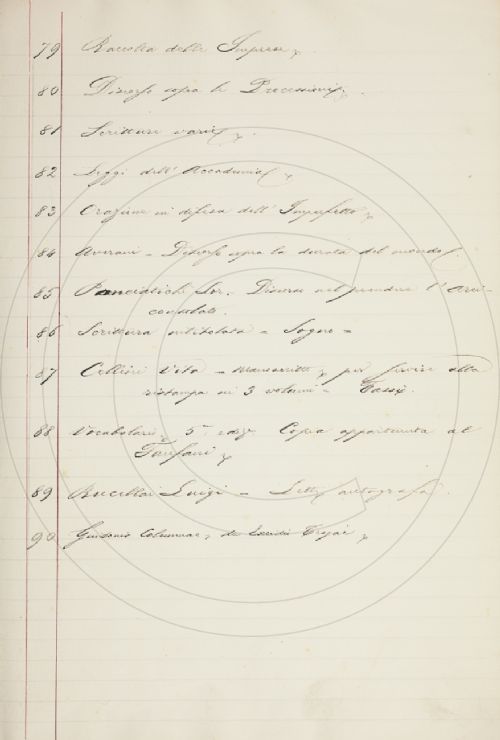 79 Raccolta delle Imprese
80 Discorso sopra le Precessioni
81 Scritture varie
82 Leggi dell' Accademia
83 Orazione in difesa dell' Imperfetto
84 Averani = Discorso sopra la durata del mondo
85 Panciatichi Lor. Discorso nel prendere l' Arci-
consolato.
86 Scrittura intitolata = Sogno =
87 Cellini Vita = Manoscritto per servire alla
ristampa in 3 volumi = Tassi.
88 Vocabolario 5ª ediz. Copia appartenuta al
Fanfani
89 Rucellai Luigi = Lett. autografa.
90 Guidonis Columnae, de Excidio Trojae